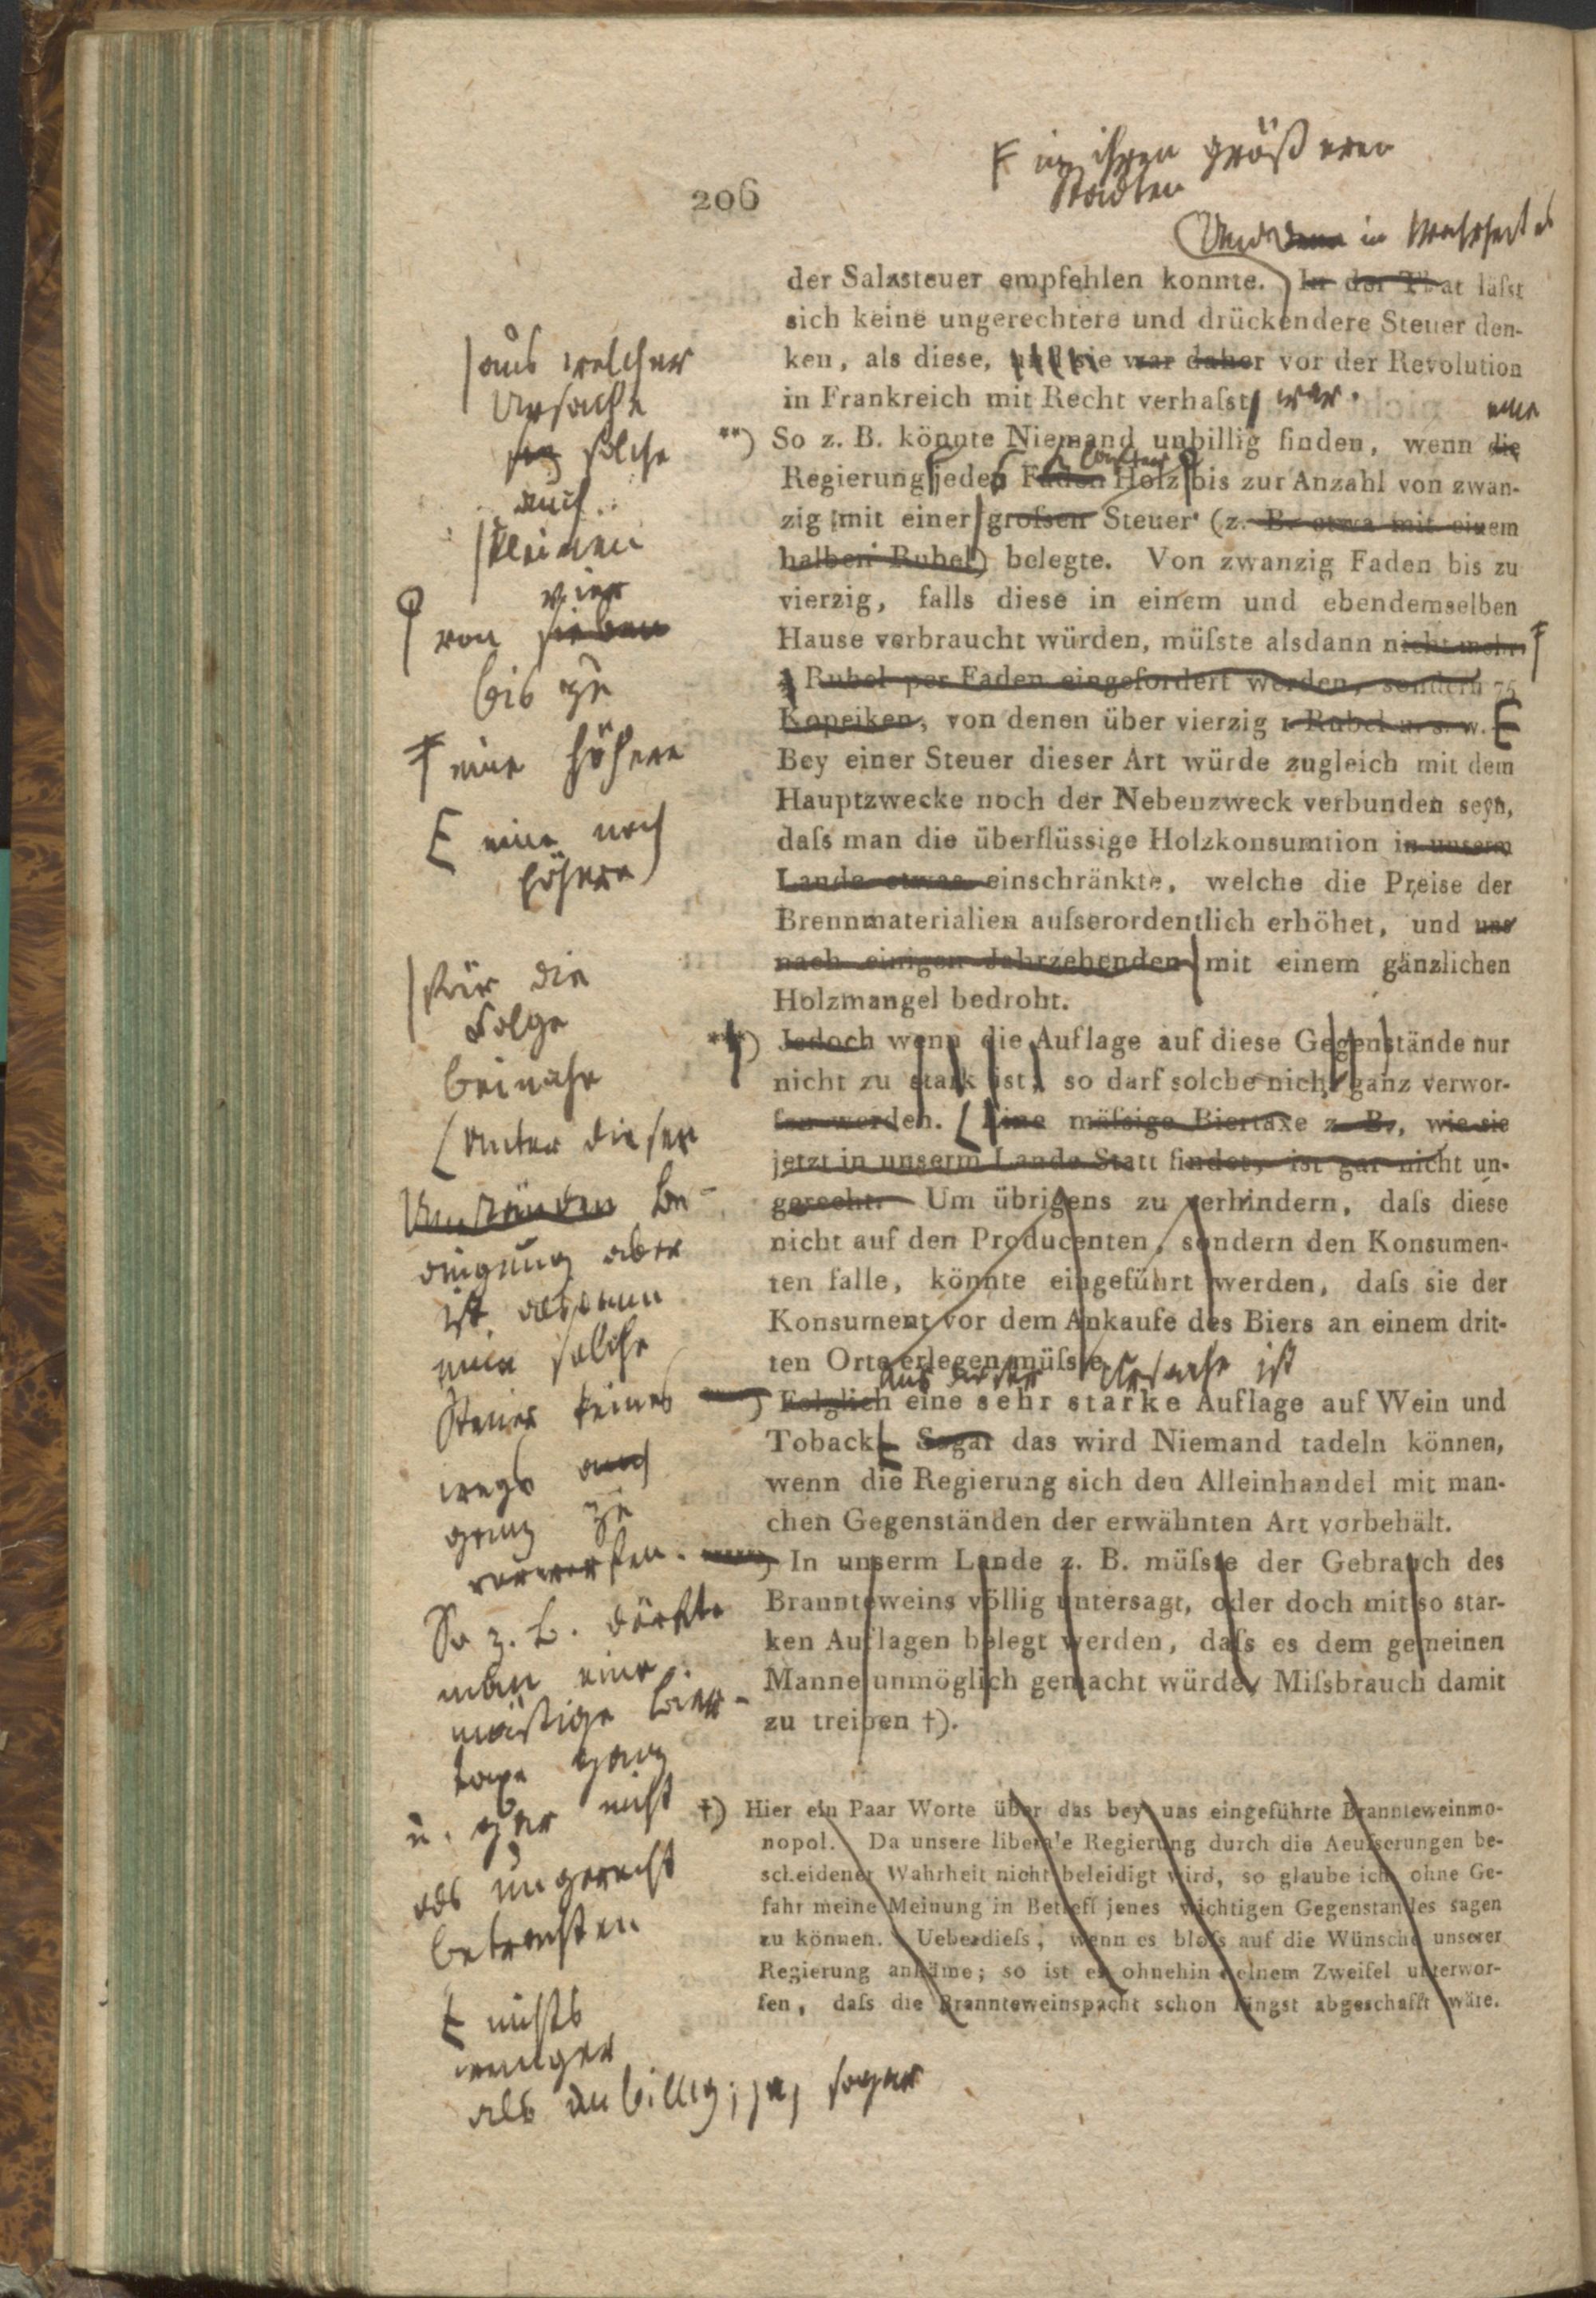 ꟻ in ihren größeren
Städten
206
Und denn in Wahrheit es
der Salzsteuer empfehlen konnte. In der That läſst
sich keine ungerechtere und drückendere Steuer den-
ken, als diese, und sie war daher vor der Revolution
in Frankreich mit Recht verhaſst, war.
eine
**) So z. B. könnte Niemand unbillig finden, wenn die
Regierung jeden Faden Holz bis zur Anzahl von zwan-
zig mit einer groſsen Steuer (z. B. etwa mit einem
halben Rubel) belegte. Von zwanzig Faden bis zu
vierzig, falls diese in einem und ebendemselben
Hause verbraucht würden, müſste alsdann nicht mehr
Rubel per Faden eingefordert werden, sondern 75
Kopeiken, von denen über vierzig 1 Rubel u. s. w.
Bey einer Steuer dieser Art würde zugleich mit dem
Hauptzwecke noch der Nebenzweck verbunden seyn,
daſs man die überflüssige Holzkonsumtion in unserm
Lande etwas einschränkte, welche die Preise der
Brennmaterialien auſserordentlich erhöhet, und uns
nach einigen Jahrzehenden mit einem gänzlichen
Holzmangel bedroht.
***) Jedoch wenn die Auflage auf diese Gegenstände nur
nicht zu stark ist, so darf solche nicht ganz verwor-
fen werden. Eine mäſsige Biertaxe z. B., wie sie
jetzt in unserm Lande Statt findet, ist gar nicht un-
gerecht. Um übrigens zu verhindern, daſs diese
nicht auf den Producenten, sondern den Konsumen-
ten falle, könnte eingeführt werden, daſs sie der
Konsument vor dem Ankaufe des Biers an einem drit-
ten Orte erlegen müſste.
Aus dieser Ursache ist
Folglich eine sehr starke Auflage auf Wein und
Toback. Sogar das wird Niemand tadeln können,
wenn die Regierung sich den Alleinhandel mit man-
chen Gegenständen der erwähnten Art vorbehält.
In unserm Lande z. B. müſste der Gebrauch des
Brannteweins völlig untersagt, oder doch mit so star-
ken Auflagen belegt werden, daſs es dem gemeinen
Manne unmöglich gemacht würde, Miſsbrauch damit
zu treiben †).
†) Hier ein Paar Worte über das bey uns eingeführte Brannteweinmo-
nopol. Da unsere liberale Regierung durch die Aeuſserungen be-
scheidener Wahrheit nicht beleidigt wird, so glaube ich, ohne Ge-
fahr meine Meinung in Betreff jenes wichtigen Gegenstandes sagen
zu können. Ueberdieſs, wenn es bloſs auf die Wünsche unserer
Regierung ankäme; so ist es ohnehin keinem Zweifel unterwor-
fen, daſs die Brannteweinspacht schon längst abgeschafft wäre.
aus welcher
Ursache
sie solche
auch
kleinen
vier
von sieben
bis zu
eine höhere
eine noch
höhere
für die
Folge
beinahe
Unter dieser
Umständen Be-
dingung aber
ist alsdann
eine solche
Steuer keines
wegs auch
ganz zu
verwerfen.
So z. B. dürfte
man eine
mäßige Bier-
taxe ganz
u. gar nicht
als ungerecht
betrachten
nichts
weniger
als unbillig; ja, sogar